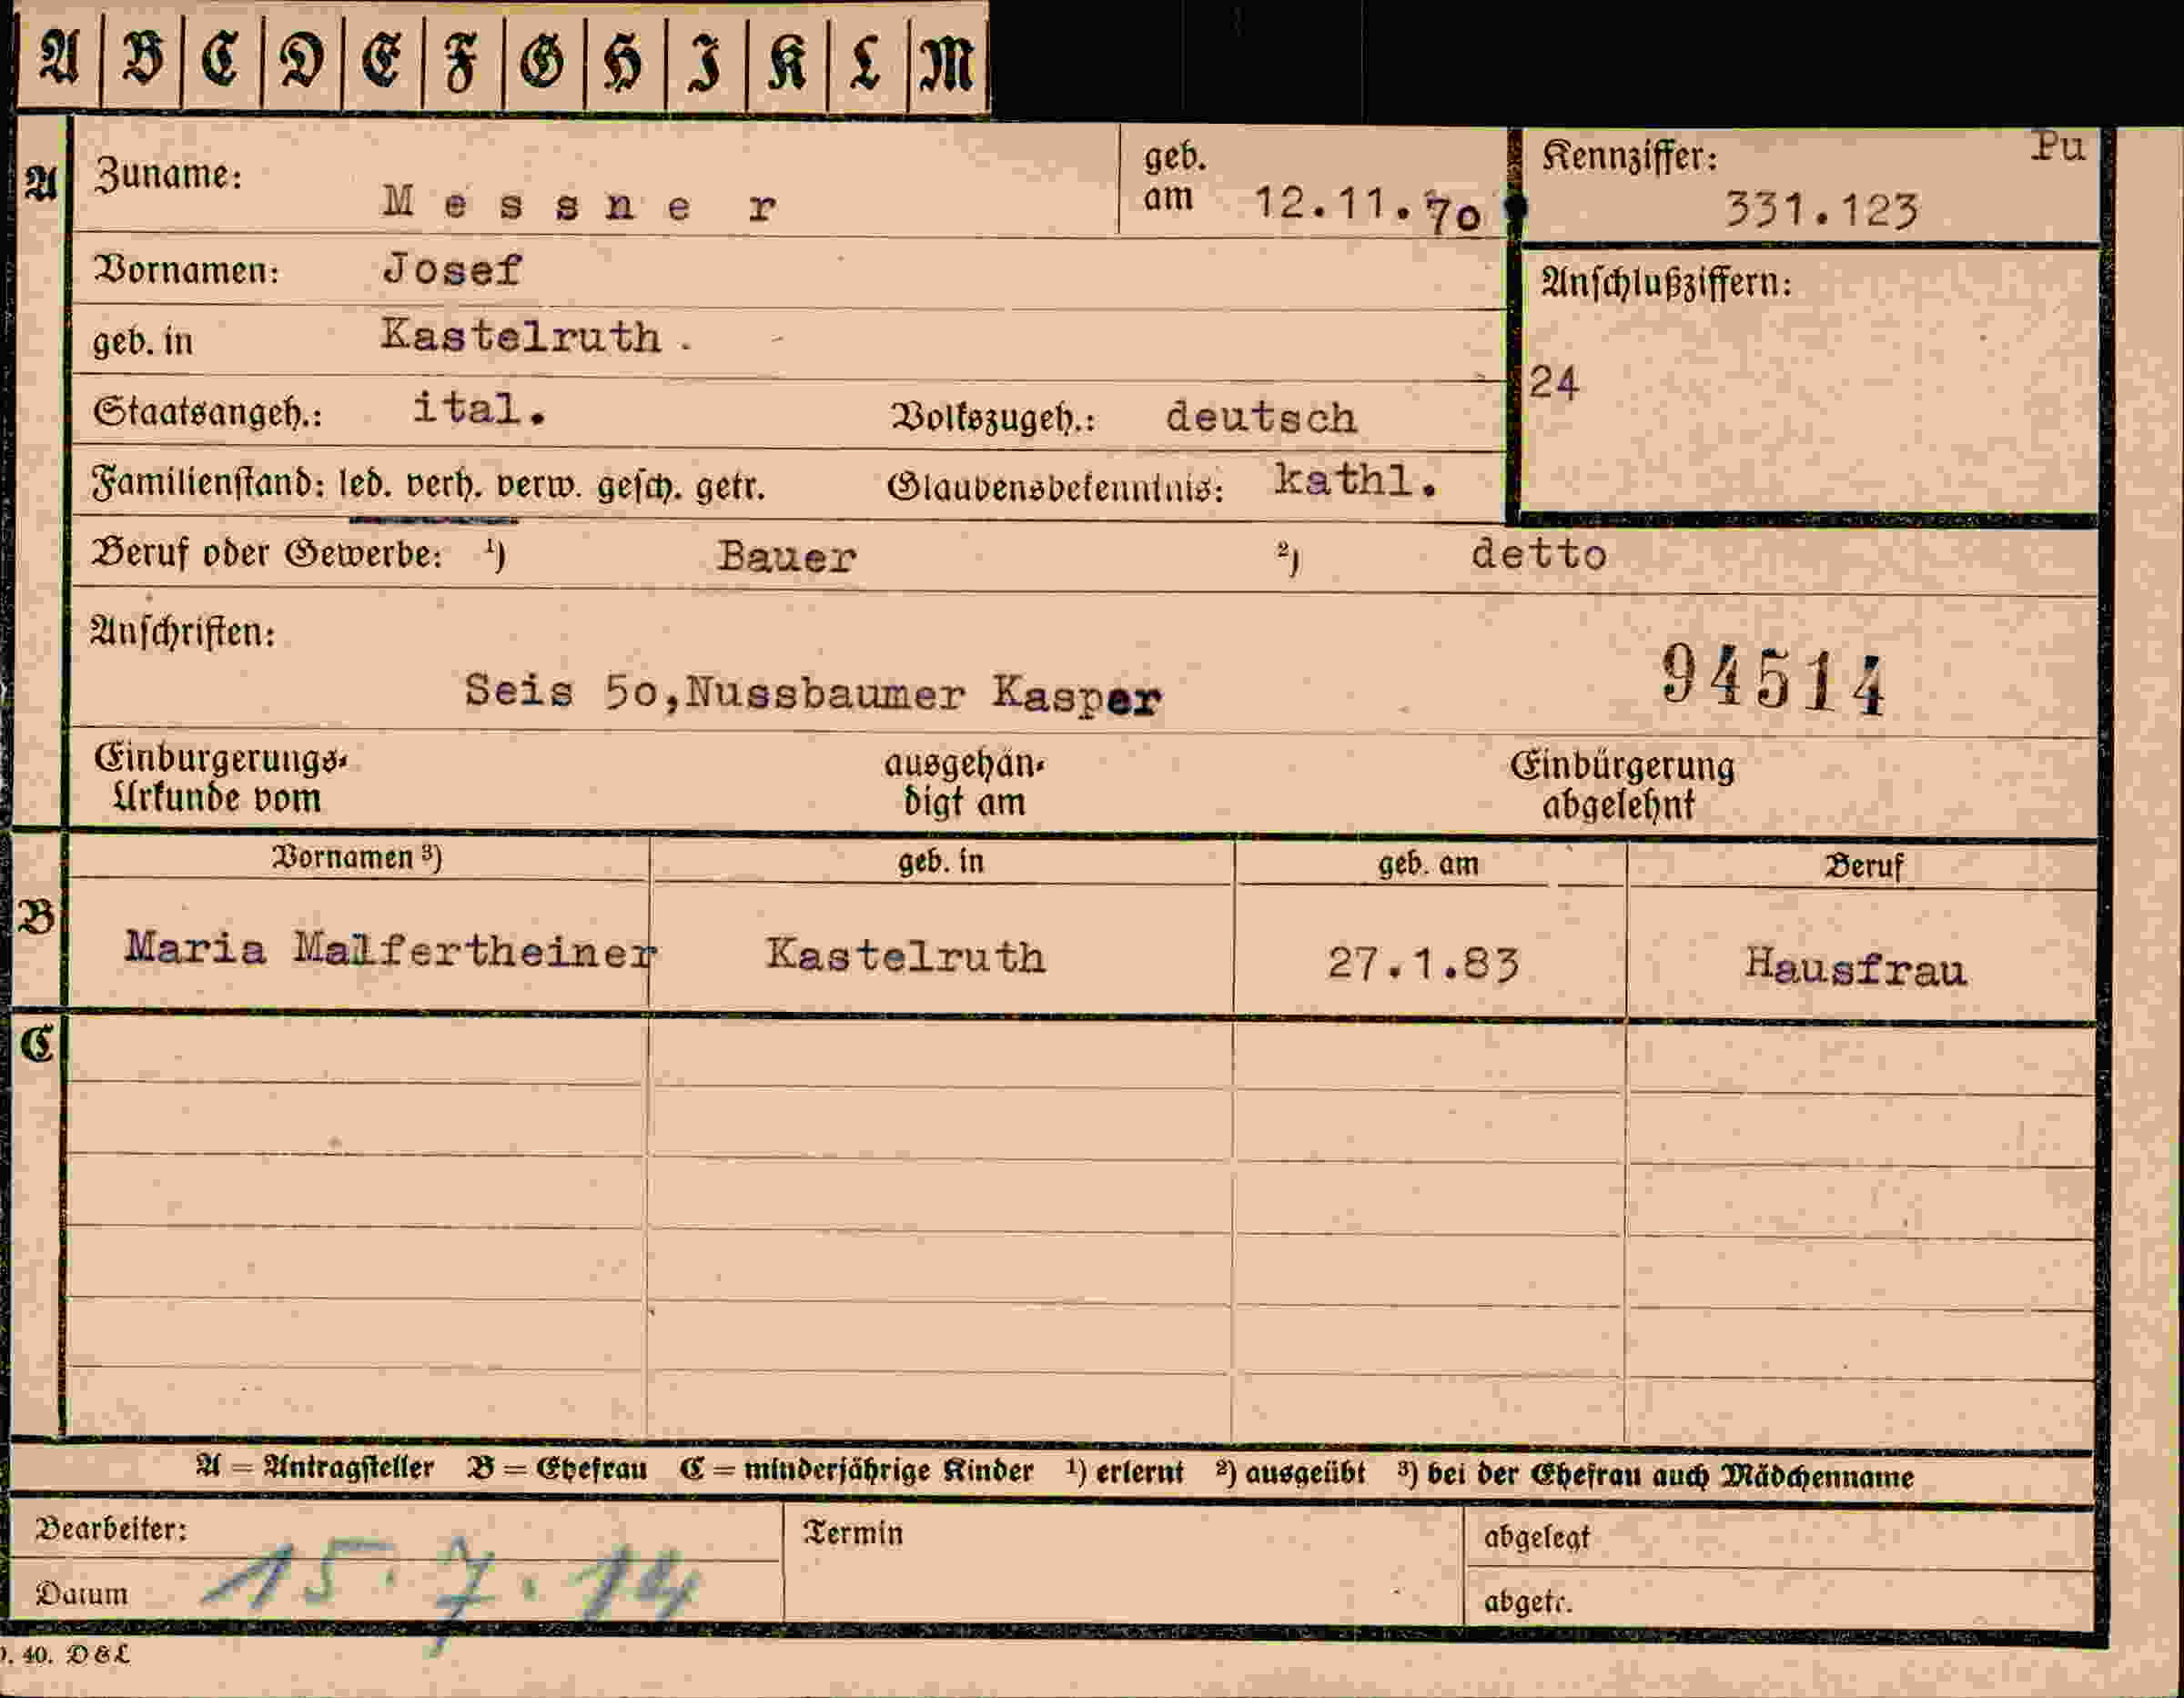 A B C D E F G H I K L M
A Zuname: Messner geb. am 12.11.70 Kennziffer: 331.123 Pu
Vornamen: Josef Anschlußziffern:
geb. in Kastelruth.
24
Staatsangeh.: ital. Volkszugeh.: deutsch
Familienstand: led. verh. verw. gesch. getr. Glaubensbekenntnis: kathl.
Beruf oder Gewerbe: ¹) Bauer ²) detto
Anschriften:
Seis 50,Nussbaumer Kasper 94514
Einbürgerungs- ausgehän- Einbürgerung
Urkunde vom digt am abgelehnt
Vornamen ³) geb. in geb. am Beruf
B Maria Malfertheiner Kastelruth 27.1.83 Hausfrau
C
A = Antragsteller B = Ehefrau C = minderjährige Kinder ¹) erlernt ²) ausgeübt ³) bei der Ehefrau auch Mädchenname
Bearbeiter: Termin abgelegt
Datum 15.7.14 abgetr.
. 40. D&L